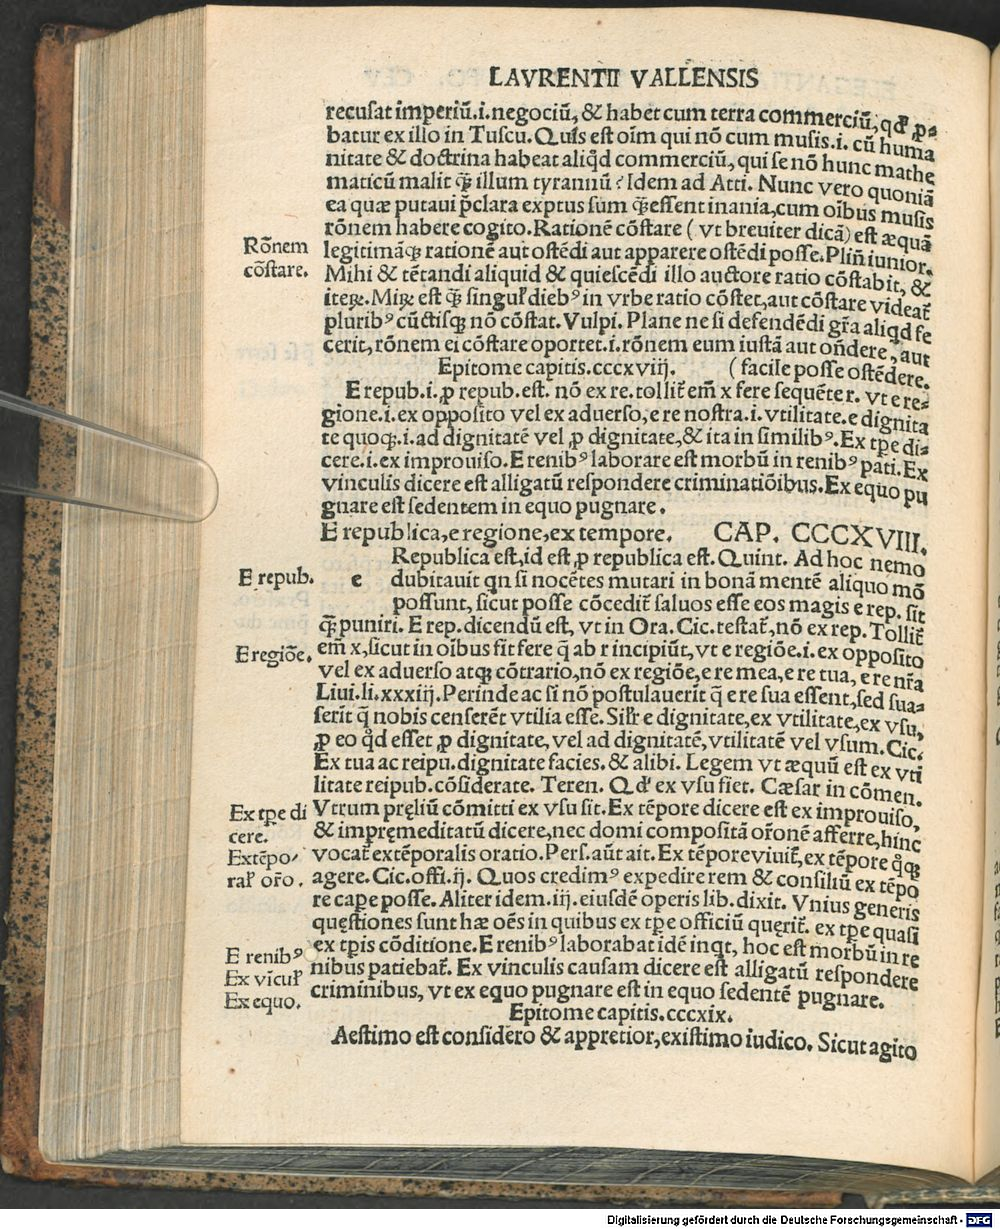 LAVRENTII VALLENSIS
recusat imperiū.i.negociū, & habet cum terra commerciū, qđ ꝓ⸗
batur ex illo in Tuscu. Quis est oīm qui nō cum musis.i. cū huma
nitate & doctrina habeat aliqd commerciū, qui se nō hunc mathe
maticū malit q̃ illum tyrannū? Idem ad Atti. Nunc vero quoniā
ea quæ putaui p̄clara exptus sum q̃ essent inania, cum oībus musis
rōnem habere cogito. Rationē cōstare ( vt breuiter dicā) est æquā
Rōnem
legitimāq; rationē aut ostēdi aut apparere ostēdi posse. Pliñ iunior.
cōstare.
Mihi & tētandi aliquid & quiescēdi illo auctore ratio cōstabit, &
iteꝝ. Miꝝ est q̃ singuł dieb⁹ in vrbe ratio cōstet, aut cōstare videat̃
plurib⁹ cūctisq; nō cōstat. Vulpi. Plane ne si defendēdi gr̃a aliqd fe
cerit, rōnem ei cōstare oportet.i. rōnem eum iustā aut oñdere, aut
Epitome capitis.cccxviij. ( facile posse ostēdere.
E repub.i. ꝓ repub.est. nō ex re. tollit̃ em̄ x fere sequēte r. vt e re⸗
gione.i. ex opposito vel ex aduerso, e re nostra.i. vtilitate. e dignita
te quoq;.i. ad dignitatē vel ꝓ dignitate, & ita in similib⁹. Ex tp̄e di⸗
cere.i. ex improuiso. E renib⁹ laborare est morbū in renib⁹ pati. Ex
vinculis dicere est alligatū respondere criminatiōibus. Ex equo pu
gnare est sedentem in equo pugnare.
E republica, e regione, ex tempore. CAP. CCCXVIII.
Republica est, id est ꝓ republica est. Quint. Ad hoc nemo
E repub.
e dubitauit qn si nocētes mutari in bonā mentē aliquo mō
possunt, sicut posse cōcedit̃ saluos esse eos magis e rep. sit
q̃ puniri. E rep. dicendū est, vt in Ora. Cic. testat̃, nō ex rep. Tollit̃
E regiōe.
em̄ x, sicut in oībus fit fere q̄ ab r incipiūt, vt e regiōe.i. ex opposito
vel ex aduerso atq; cōtrario, nō ex regiōe, e re mea, e re tua, e re nr̃a
Liui. li. xxxiij. Perinde ac si nō postulauerit q̄ e re sua essent, sed sua⸗
serit q̄ nobis censerēt vtilia esse. Sił e dignitate, ex vtilitate, ex vsu,
ꝓ eo qđ esset ꝓ dignitate, vel ad dignitatē, vtilitatē vel vsum. Cic.
Ex tua ac reipu. dignitate facies. & alibi. Legem vt æquū est ex vti
litate reipub. cōsiderate. Teren. Qđ ex vsu fiet. Cæsar in cōmen.
Ex tp̄e di
Vtrum pręliū cōmitti ex vsu sit. Ex tēpore dicere est ex improuiso,
cere.
& impręmeditatū dicere, nec domi compositā or̃onē afferre, hinc
Extēpo⸗
vocat̃ extēporalis oratio. Pers. aūt ait. Ex tēpore viuit̃, ex tēpore q̊q;
rał or̃o.
agere. Cic. offi. ij. Quos credim⁹ expedire rem & consiliū ex tēpo
re cape posse. Aliter idem. iij. eiusdē operis lib. dixit. Vnius generis
quęstiones sunt hæ oēs in quibus ex tp̄e officiū quęrit̃. ex tp̄e quasi
E renib⁹
ex tp̄is cōditione. E renib⁹ laborabat idē inqt, hoc est morbū in re
Ex vīcuł
nibus patiebat̃. Ex vinculis causam dicere est alligatū respondere
Ex equo.
criminibus, vt ex equo pugnare est in equo sedentē pugnare.
Epitome capitis.cccxix.
Aestimo est considero & appretior, existimo iudico. Sicut agito
Digitalisierung gefördert durch die Deutsche Forschungsgemeinschaft - DFG